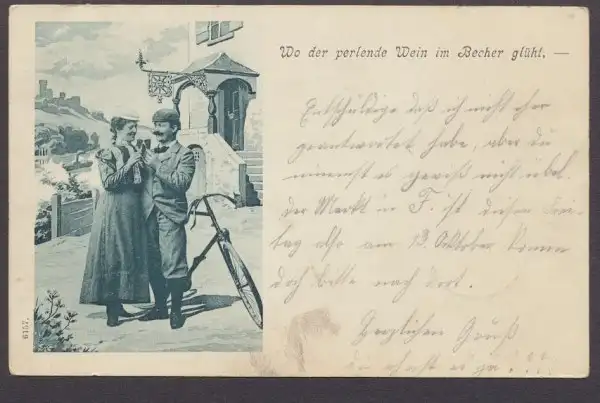 Wo der perlende Wein im Becher glüht, —
Entschuldige daß ich nicht eher
geantwortet habe, aber du
nimmst es gewiß nicht übel.
der Markt in F. ist diesen Frei-
tag also am 13. Oktober komm
doch bitte nach dort.
Herzlichen Gruß
du ahnst es ja!!!
6157.